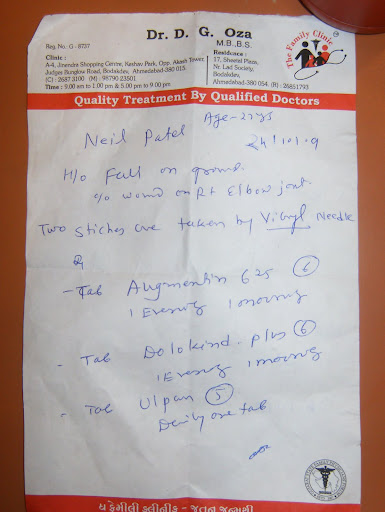 Dr. D. G. Oza
M.B.,B.S.
Reg. No.: G - 8737
Clinic :
A-4, Jinendra Shopping Centre, Keshav Park, Opp. Akash Tower,
Judges Bunglow Road, Bodakdev, Ahmedabad-380 015.
(C) : 2687 3100 (M) : 98790 23501
Time : 9.00 am to 1.00 pm & 5.00 pm to 9.00 pm
Residence :
17, Sheetal Plaza,
Nr. Lad Society,
Bodakdev,
Ahmedabad-380 054. (R) : 26851793
The Family Clinic
Quality Treatment By Qualified Doctors
Neil Patel Age-27ys
24/10/09
H/o Fall on ground.
c/o wound on Rt Elbow joint.
Two Stiches are taken by Vicryl Needle
- Tab Augmentin 625 (6)
1 Evening 1 morning
- Tab Dolokind. plus (6)
1 Evening 1 morning
- Tab Ulpan (5)
Daily one tab
ધ ફેમીલી ક્લીનીક - જતન જન્મથી